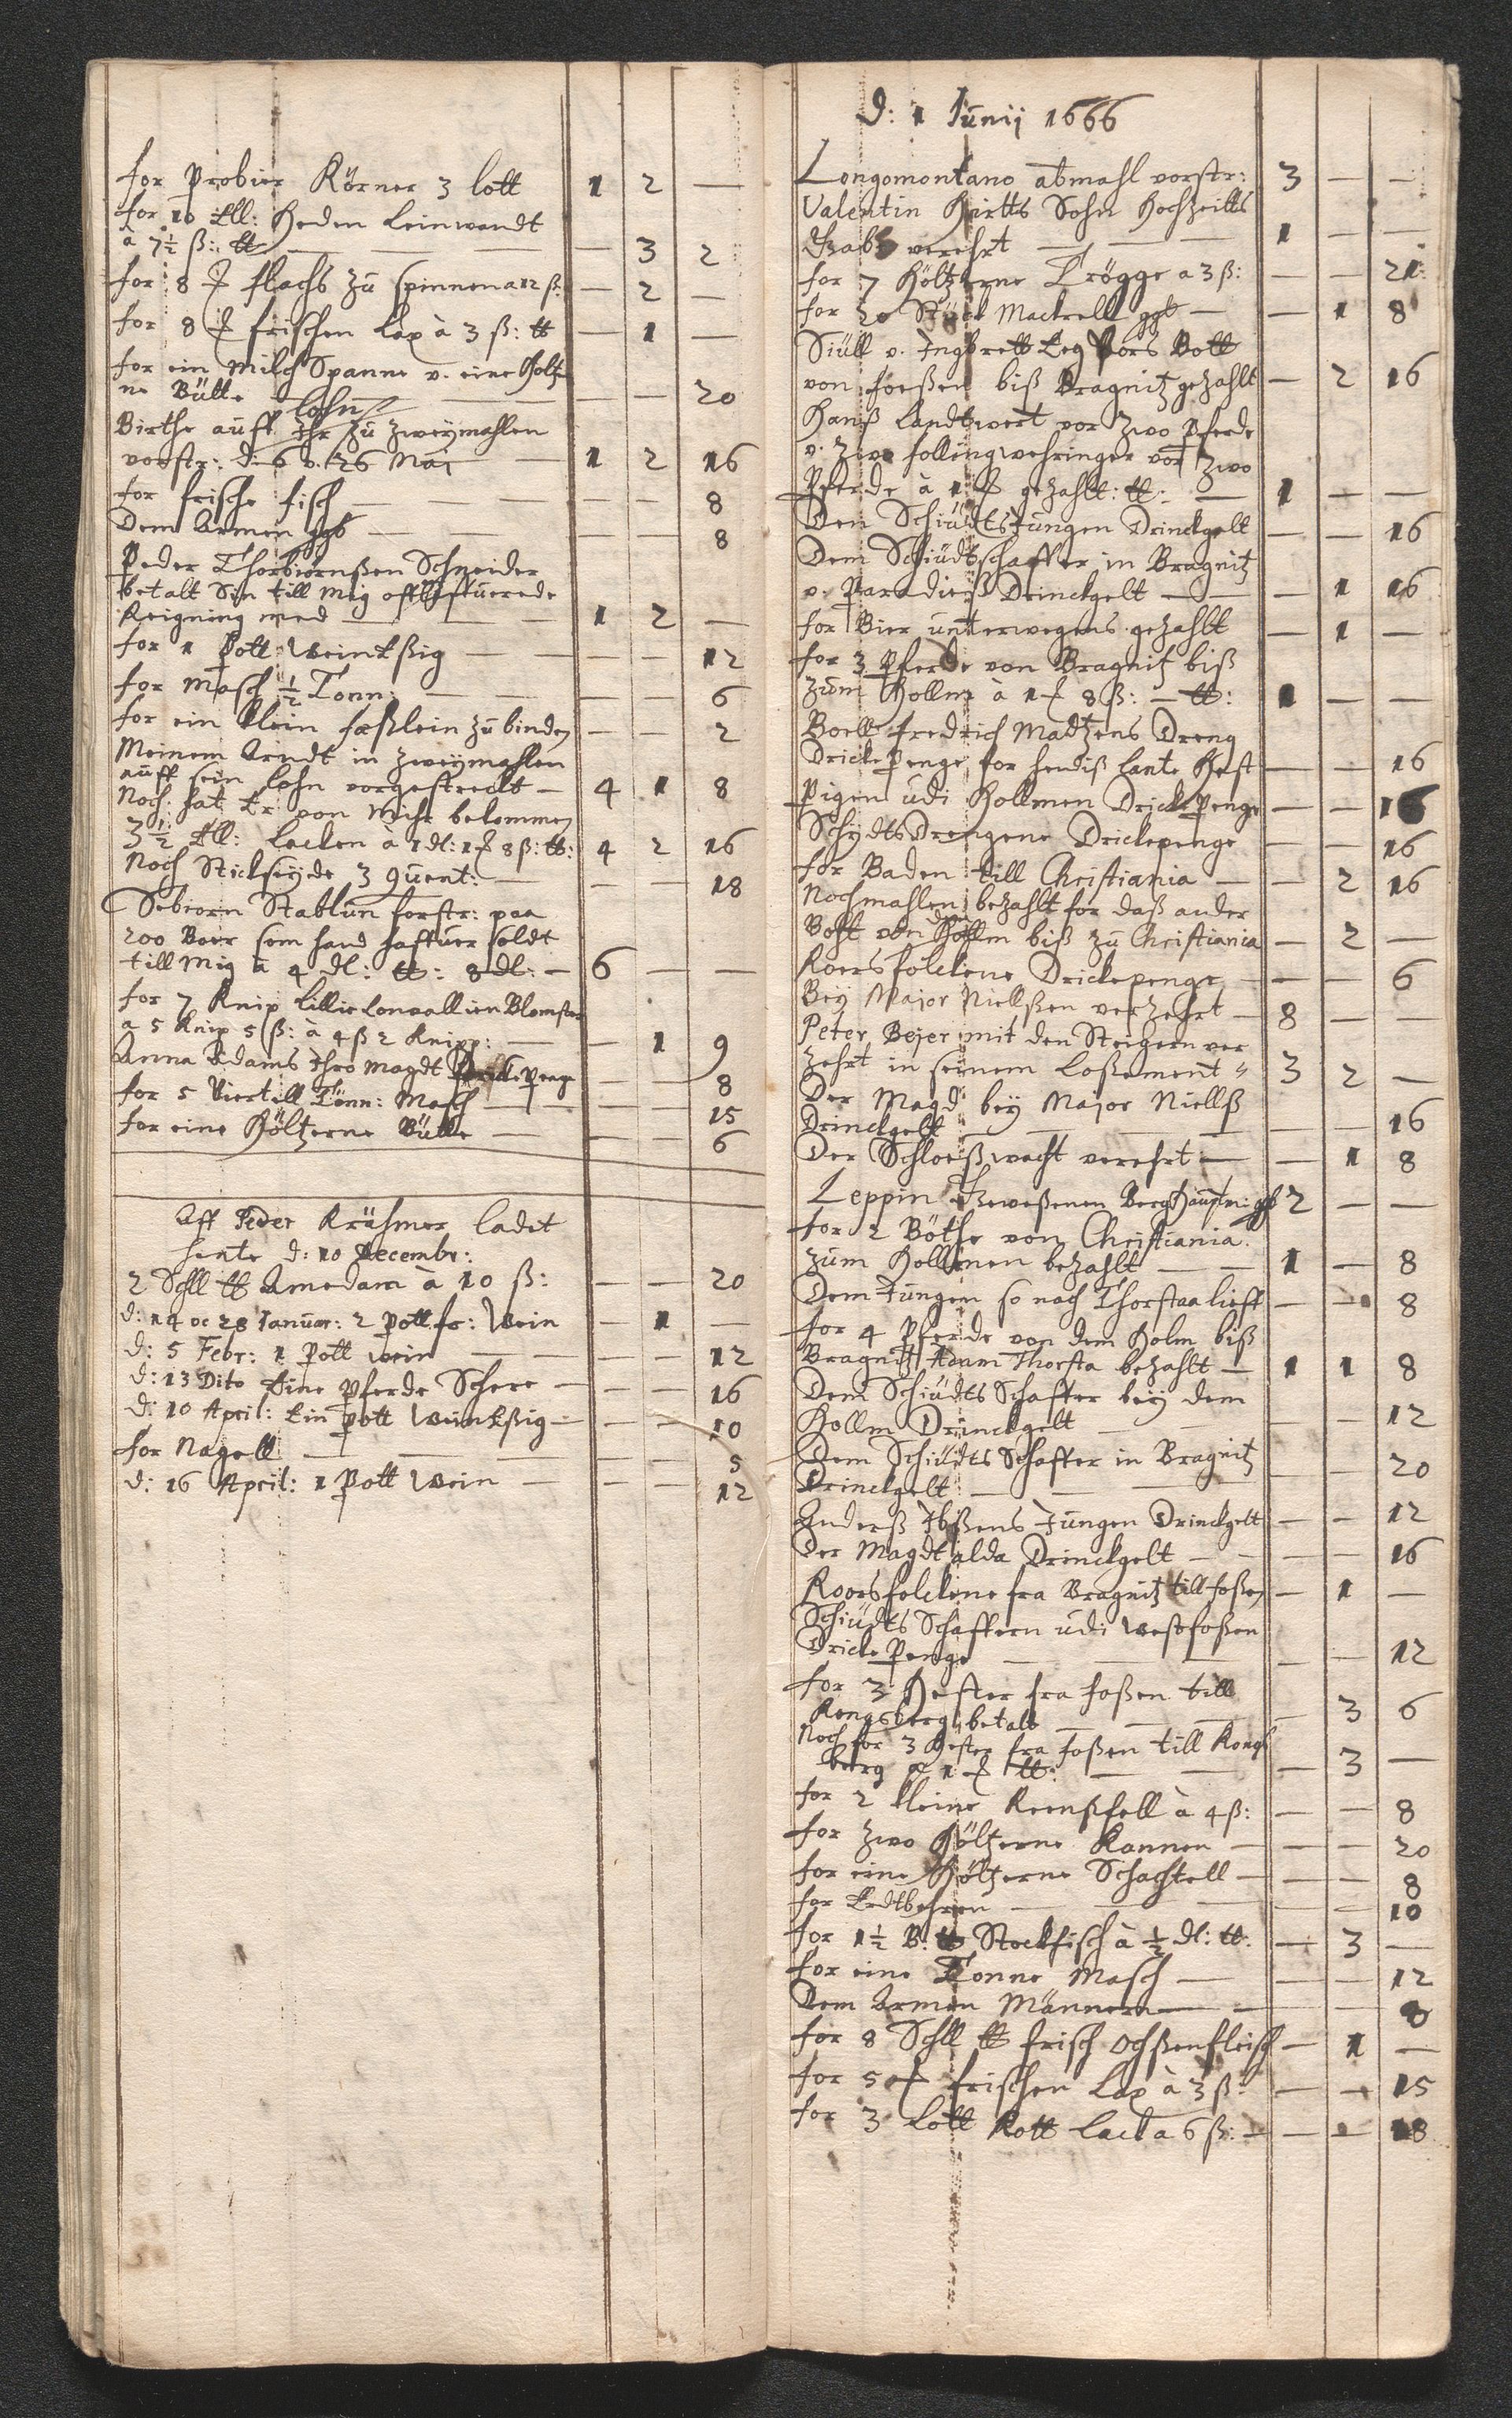 for Probier Körner 3 lott 1 2 —
for 10 Ell: Heden Leinwandt
à 7½ ß: tt — 3 2
for 8 ℔ flachs zu spinnen a 12 ß: — 2 —
for 8 ℔ frischen Lax à 3 ß: tt — 1 —
for ein Milch Spanne v. eine Holtze
ne Bütte — — 20
lohn
Birthe auff Ihr zu zweymahlen
vorstr: d: 6 v. 26 Maj 1 2 16
for frische fisch — — 8
Dem Armen ggb — — 8
Peder Thorbiörnßen Schneider
betalt Sin till mig
Reigning med 1 2 —
for 1 Pott Weinkßig — — 12
for Masch ½ Tonn: — — 6
for ein klein feßlein zu binden — — 2
Meinem Arndt in zweymahlen
auff sein lohn vorgestreckt 4 1 8
Noch hat Er von Mihr bekommen
3½ Ell: Lacken à 1 dl: 1 ℔ 8 ß: tt: 4 2 16
Noch Sticksyde 3 quent: — — 18
Sebiorn Stablun forstr: paa
200 Boer som hand haffuer soldt
till mig à 4 dl: tt: 8 dl: 6 — —
for 7 Knip lillie Convallien Blomster
a 5 Knip 5 ß: à 4 ß 2 Knipp: — 1 9
Anna Adams Ihro Magdt Dricke Penge — — 8
for 5 Viertell Tönn: Masch — — 15
for eine Höltzerne Bütte — — 6
Aff Peder Krähmer ladet
hente d: 10 Decembr:
2 Schll tt Amedam à 10 ß: — — 20
d: 14 oc 28 Januar: 2 Pott fr: Wein — 1 —
d: 5 Febr: 1 Pott wein — — 12
d: 13 Dito Eine Pferde Schere — — 16
d: 10 April: Ein Pott Weinkßig — — 10
for Nagell — — 5
d: 16 April: 1 Pott Wein — — 12
D: 1 Junij 1666
Longomontano abmahl vorstr: 3 — —
Valentin Hirtts Sohn Hochzeitts
Gab verehrt 1 — —
for 7 Höltzerne Trögge a 3 ß: — — 21
for 20 Stück Mackrell ggt — 1 8
Siüll v. Ingbrett Bott
von foeßen biß Bragnitz gezahlt — 2 16
Hanß Landtwert vor zwo Pferde
v. Zwo follingwehringer vor zwo
Pferde à 1 ℔ gezahlt: tt: 1 — —
Den Schiüdtsjungen Drinckgelt — — 16
Dem Schiüdtschaffer in Bragnitz
v. Paradieß Drinckgelt — 1 16
for Bier unterwegens gezahlt — 1 —
for 3 Pferde von Bragnitz biß
zum Hollme à 1 ℔ 8 ß: tt: 1 — —
Boell fredrich Madtzens Dreng
Dricke Penge for hendiß lante Hest — — 16
Pigen udi Hollmen Dricke Penge — — 16
SchydtsDrengene Drickepenge — — 16
for Baden till Christiania — 2 16
Nochmahlen bezahlt for daß ander
Boht von Hollm biß zu Christiania — 2 —
Roersfolckene Drickepenge — — 6
Bey Major Niellßen verzehrt 8 — —
Peter Bejer mit den Steigern ver
zehrt in seinem Loßement 3 2 —
Der Magd bey Major Niellß
Drinckgelt — — 16
Der Schloeßwacht verehrt — 1 8
Leppin Geweßenen Berghauptm: ggb 2 — —
for 2 Böthe von Christiania
zum Hollmen bezahlt 1 — 8
Dem Jungen so nach Thorstaa lieff — — 8
for 4 Pferde von dem Holm biß
Bragnitz Adam Thorsta bezahlt 1 1 8
Dem Schiüdts Schaffer bey dem
Hollm Drinckgelt — — 12
Dem Schiüdts Schaffer in Bragnitz
Drinckgelt — — 20
Anderß Ibßens Jungen Drinckgelt — — 12
Der Magdt alda Drinckgelt — — 16
Roorsfolckene fra Bragnitz till foßen — 1 —
Schiüdts Schaffern udi Westfoßen
Dricke Penge — — 12
for 3 Hester fra foßen till
Kongsberg betalt — 3 6
Noch for 3 Hester fra foßen till Kongs
berg a 1 ℔ tt: — 3 —
for 2 kleine Reenßfell à 4 ß: — — 8
for zwo Höltzerne Kannen — — 20
for eine Höltzerne Schachtell — — 8
for Erdtbehren — — 10
for 1½ B: tt Stockfisch à ½ dl: tt: — 3 —
for eine Tonne Masch — — 12
Dem Armen Männern — — 8
for 8 Schll tt frisch Ochßenfleisch — 1 —
for 5 ℔ frischen Lax à 3 ß: — — 15
for 3 Lott Rott Lack a 6 ß: — — 18